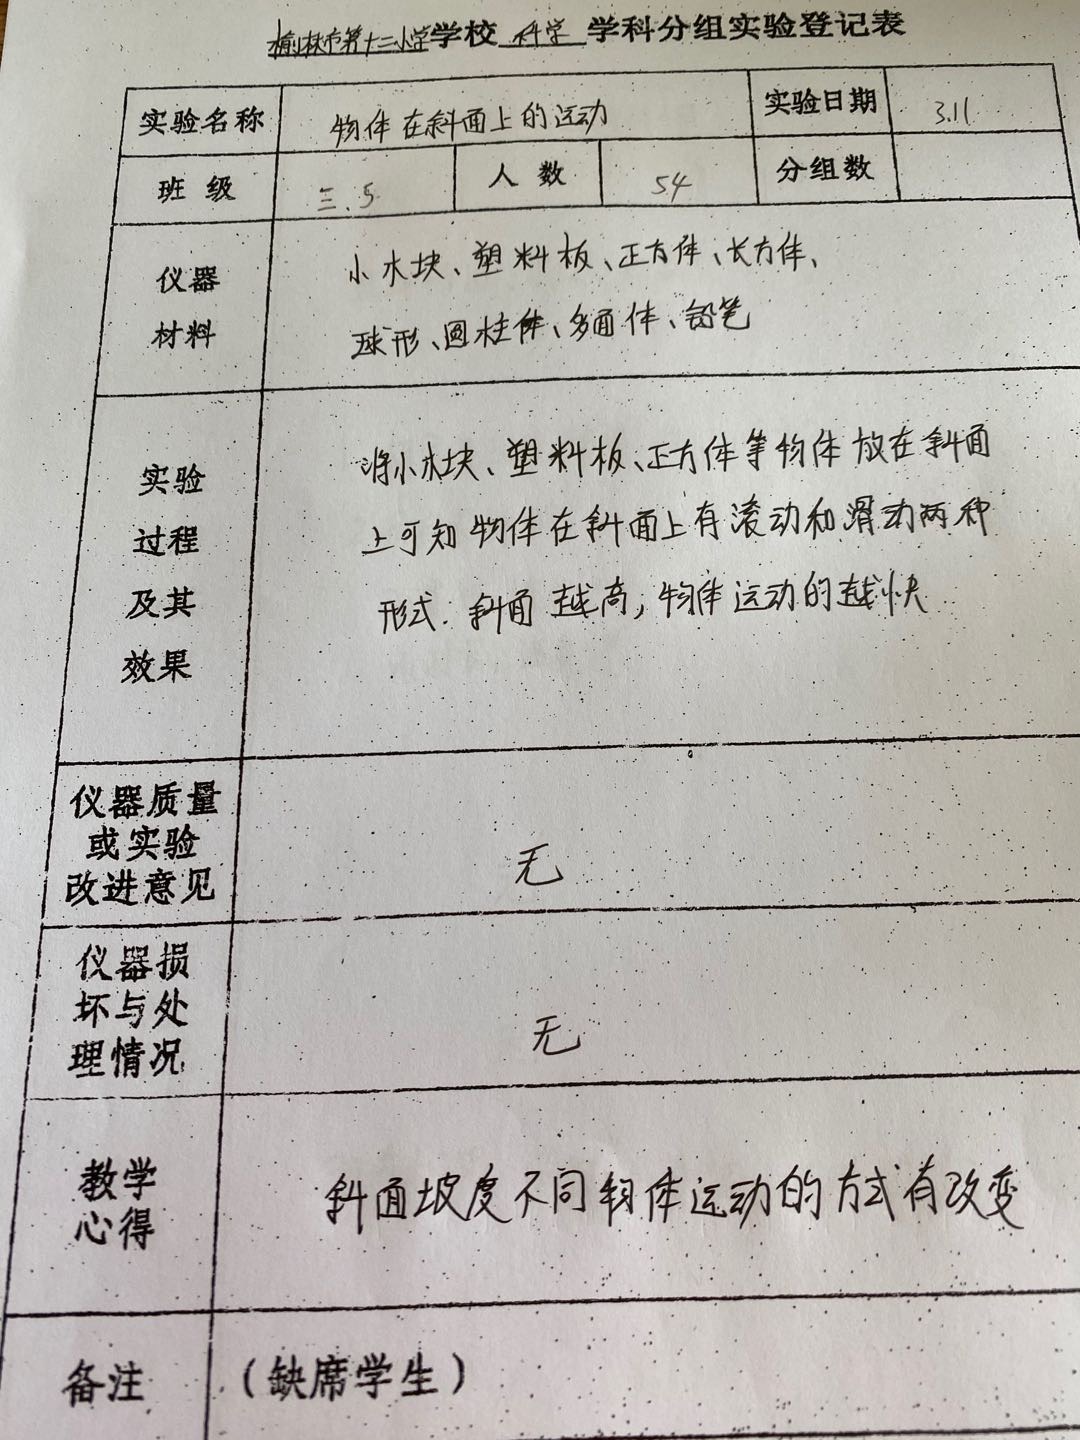 榆林市第十二小学学校 科学 学科分组实验登记表
实验名称 物体在斜面上的运动 实验日期 3.11
班 级 三.5 人 数 54 分组数
仪器
材料
小木块、塑料板、正方体、长方体、
球形、圆柱体、多面体、铅笔
实验
过程
及其
效果
将小木块、塑料板、正方体等物体放在斜面
上可知物体在斜面上有滚动和滑动两种
形式. 斜面越高,物体运动的越快
仪器质量
或实验
改进意见
无
仪器损
坏与处
理情况
无
教学
心得
斜面坡度不同物体运动的方式有改变
备注 (缺席学生)